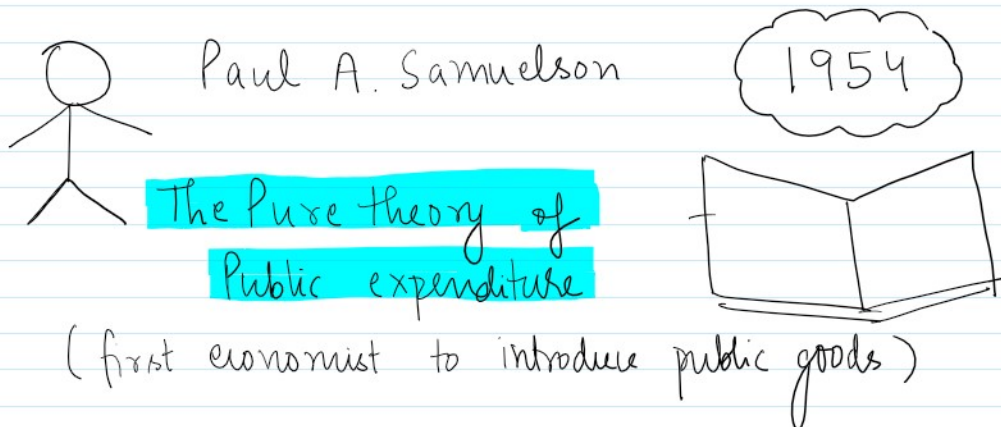 Paul A. Samuelson
1954
The Pure theory of
Public expenditure
(first economist to introduce public goods)